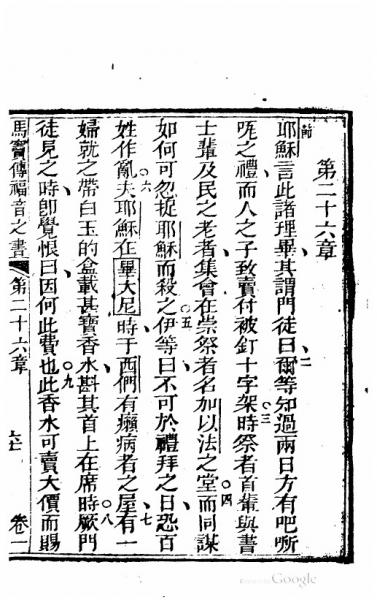 第二十六章
節耶穌言此諸理畢其謂門徒曰二爾等知過兩日方有吧㗭
之禮而人之子致賣付被釘十字架三時祭者首輩與書
士輩及民之老者集會在崇祭者名加以法之堂四而同謀
如何可忽捉耶穌而殺之五伊等曰不可於禮拜之日恐百
姓作亂六夫耶穌在畢大尼時于西們有癩病者之屋七有一
婦就之帶白玉的盒載甚寶香水斟其首上在席時八厥門
徒見之時即覺恨曰因何此費也九此香水可賣大價而賜
馬竇傳福音之書 第二十六章 卷一
Google